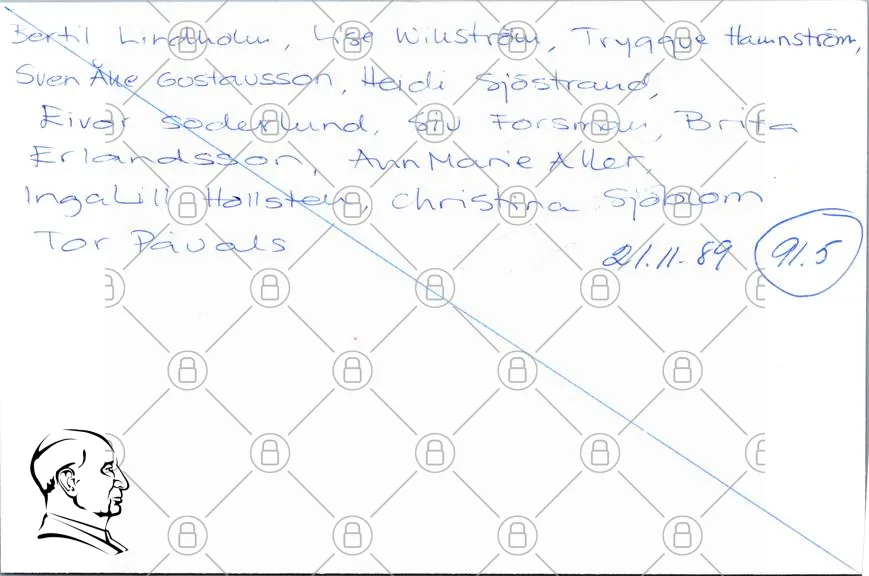 Bertil Lindholm, Lise Wikström, Tryggve Hamnström,
Sven Åke Gustavsson, Heidi Sjöstrand,
Eivor Söderlund, Siv Forsman, Brita
Erlandsson, Ann Marie Aller,
IngaLill Hallsten, Christina Sjöblom
Tor Påvals
21.11.89 91.5